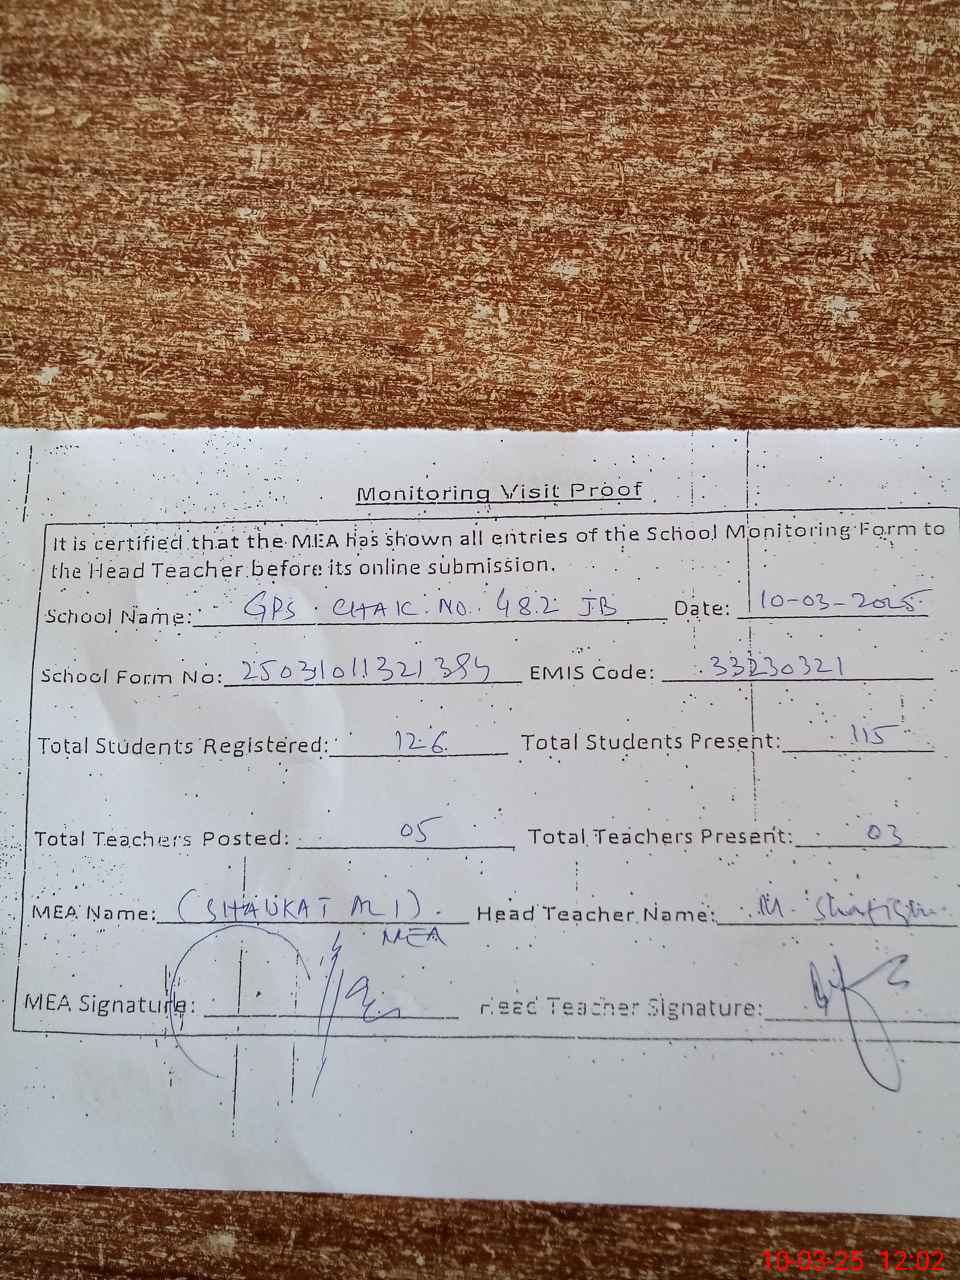 Monitoring Visit Proof
It is certified that the MEA has shown all entries of the School Monitoring Form to
the Head Teacher before its online submission.
School Name: GPS CHAK NO. 482 JB Date: 10-03-2025
School Form No: 25031011321384 EMIS Code: 33230321
Total Students Registered: 126 Total Students Present: 115
Total Teachers Posted: 05 Total Teachers Present: 03
MEA Name: (SHAUKAT ALI) Head Teacher Name: M. Shafiq
MEA
MEA Signature: Head Teacher Signature:
10-03-25 12:02